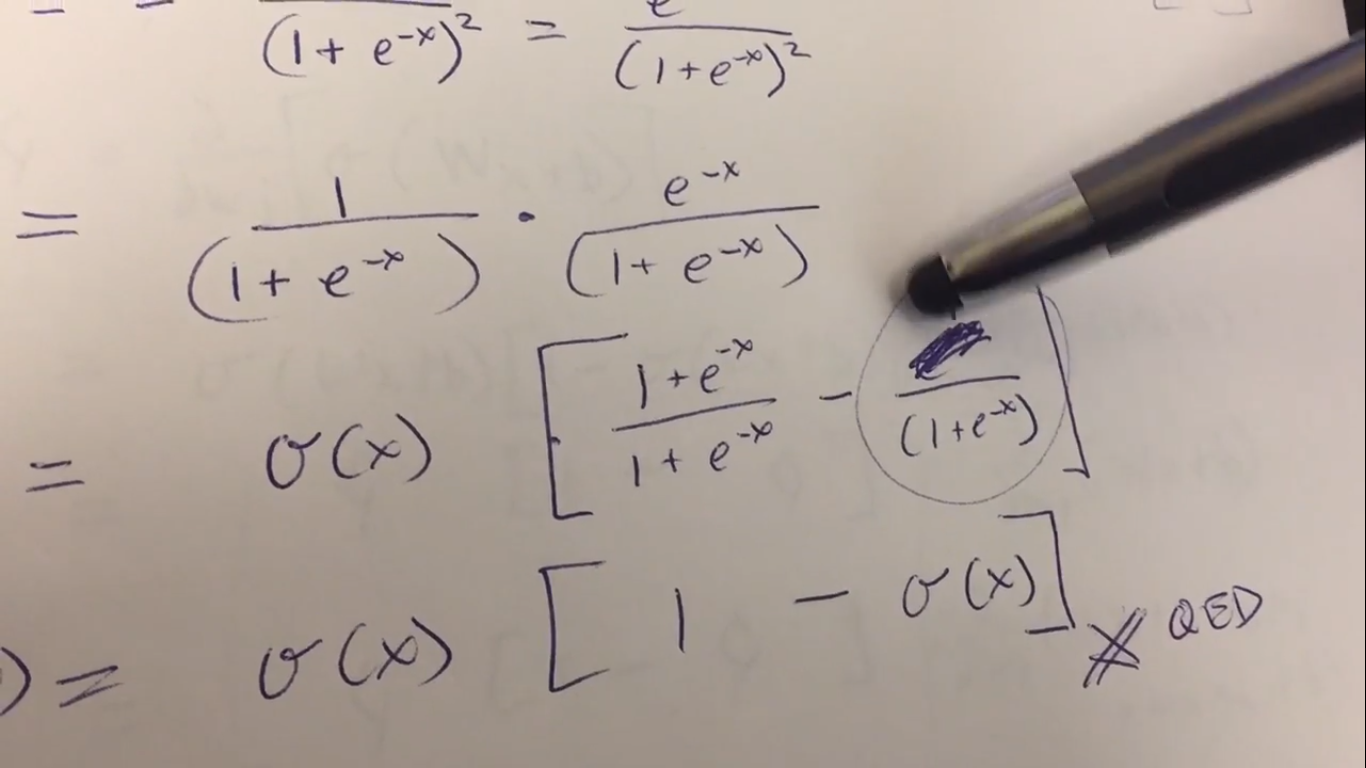 (1 + e^-x)^2 = e / (1+e^-x)^2
= 1 / (1 + e^-x) · e^-x / (1+ e^-x)
= σ(x) [ 1+e^-x / 1+e^-x - / (1+e^-x) ]
) = σ(x) [ 1 - σ(x) ] QED